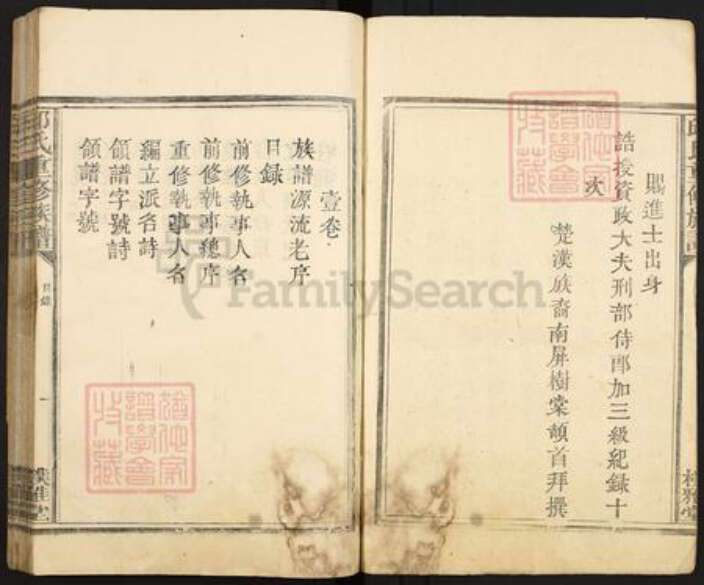 邱氏重修族譜
賜進士出身
誥授資政大夫刑部侍郎加三級紀錄十
次
楚漢威裔南屏樹棠頓首拜撰
壹卷
族譜源流老序
目錄
前修執事人名
前修執事總序
重修執事人名
編立派名詩
領譜字號詩
領譜字號
邱氏重修族譜
目錄
樸雅堂
FamilySearch